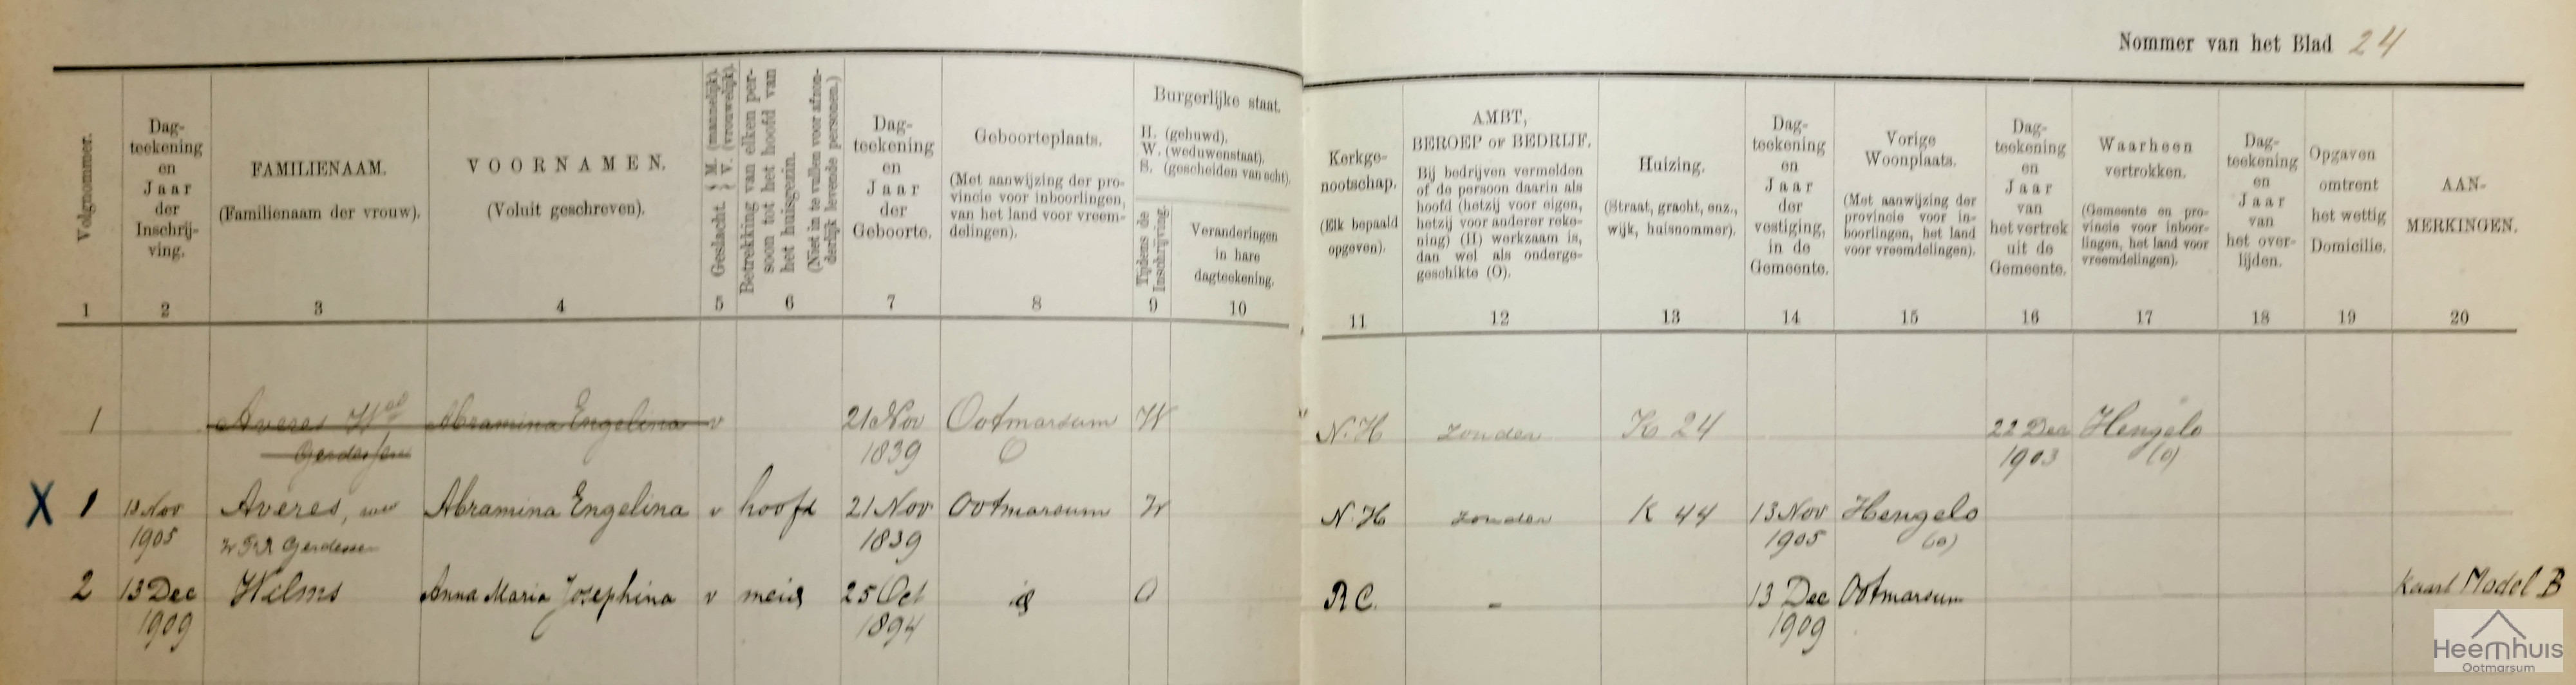 Nommer van het Blad 24
Volgnommer.
1
Dag-
teekening
en
Jaar
der
Inschrij-
ving.
2
FAMILIENAAM.
(Familienaam der vrouw).
3
VOORNAMEN.
(Voluit geschreven).
4
Geslacht. { M. (mannelijk). V. (vrouwelijk).
5
Betrekking van elken per-
soon tot het hoofd van
het huisgezin.
(Niet in te vullen voor afzon-
derlijk levende personen.)
6
Dag-
teekening
en
Jaar
der
Geboorte.
7
Geboorteplaats.
(Met aanwijzing der pro-
vincie voor inboorlingen,
van het land voor vreem-
delingen).
8
Burgerlijke staat.
H. (gehuwd).
W. (weduwenstaat).
S. (gescheiden van echt).
Tijdens de
Inschrijving.
9
Veranderingen
in hare
dagteekening.
10
Kerkge-
nootschap.
(Elk bepaald
opgeven).
11
AMBT,
BEROEP of BEDRIJF.
Bij bedrijven vermelden
of de persoon daarin als
hoofd (hetzij voor eigen,
hetzij voor anderer reke-
ning) (H) werkzaam is,
dan wel als onderge-
geschikte (O).
12
Huizing.
(Straat, gracht, enz.,
wijk, huisnommer).
13
Dag-
teekening
en
Jaar
der
vestiging,
in de
Gemeente.
14
Vorige
Woonplaats.
(Met aanwijzing der
provincie voor in-
boorlingen, het land
voor vreemdelingen).
15
Dag-
teekening
en
Jaar
van
het vertrek
uit de
Gemeente.
16
Waarheen
vertrokken.
(Gemeente en pro-
vincie voor inboor-
lingen, het land voor
vreemdelingen).
17
Dag-
teekening
en
Jaar
van
het over-
lijden.
18
Opgaven
omtrent
het wettig
Domicilie.
19
AAN-
MERKINGEN.
20
1 Averes Wed Abramina Engelina v 21 Nov Ootmarsum W N.H zonder K 24 22 Dec Hengelo
Gerdessen 1839 O 1903 (o)
X 1 13 Nov Averes, wed Abramina Engelina v hoofd 21 Nov Ootmarsum W N.H zonder K 44 13 Nov Hengelo
1905 Gerdessen 1839 1905 (o)
2 13 Dec Wilms Anna Maria Josephina v meid 25 Oct id O R C. - 13 Dec Ootmarsum Kaart Model B
1909 1894 1909
Heemhuis
Ootmarsum